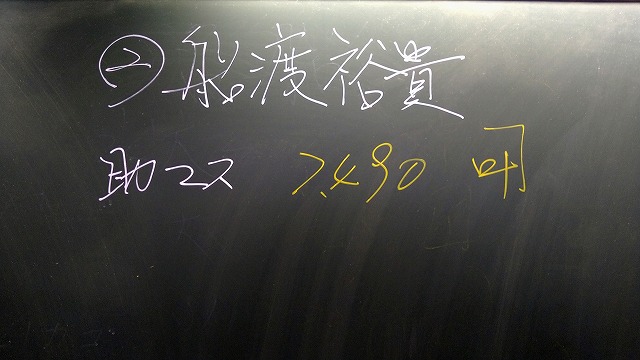 ② 船渡裕貴
助マス 7,490 叶